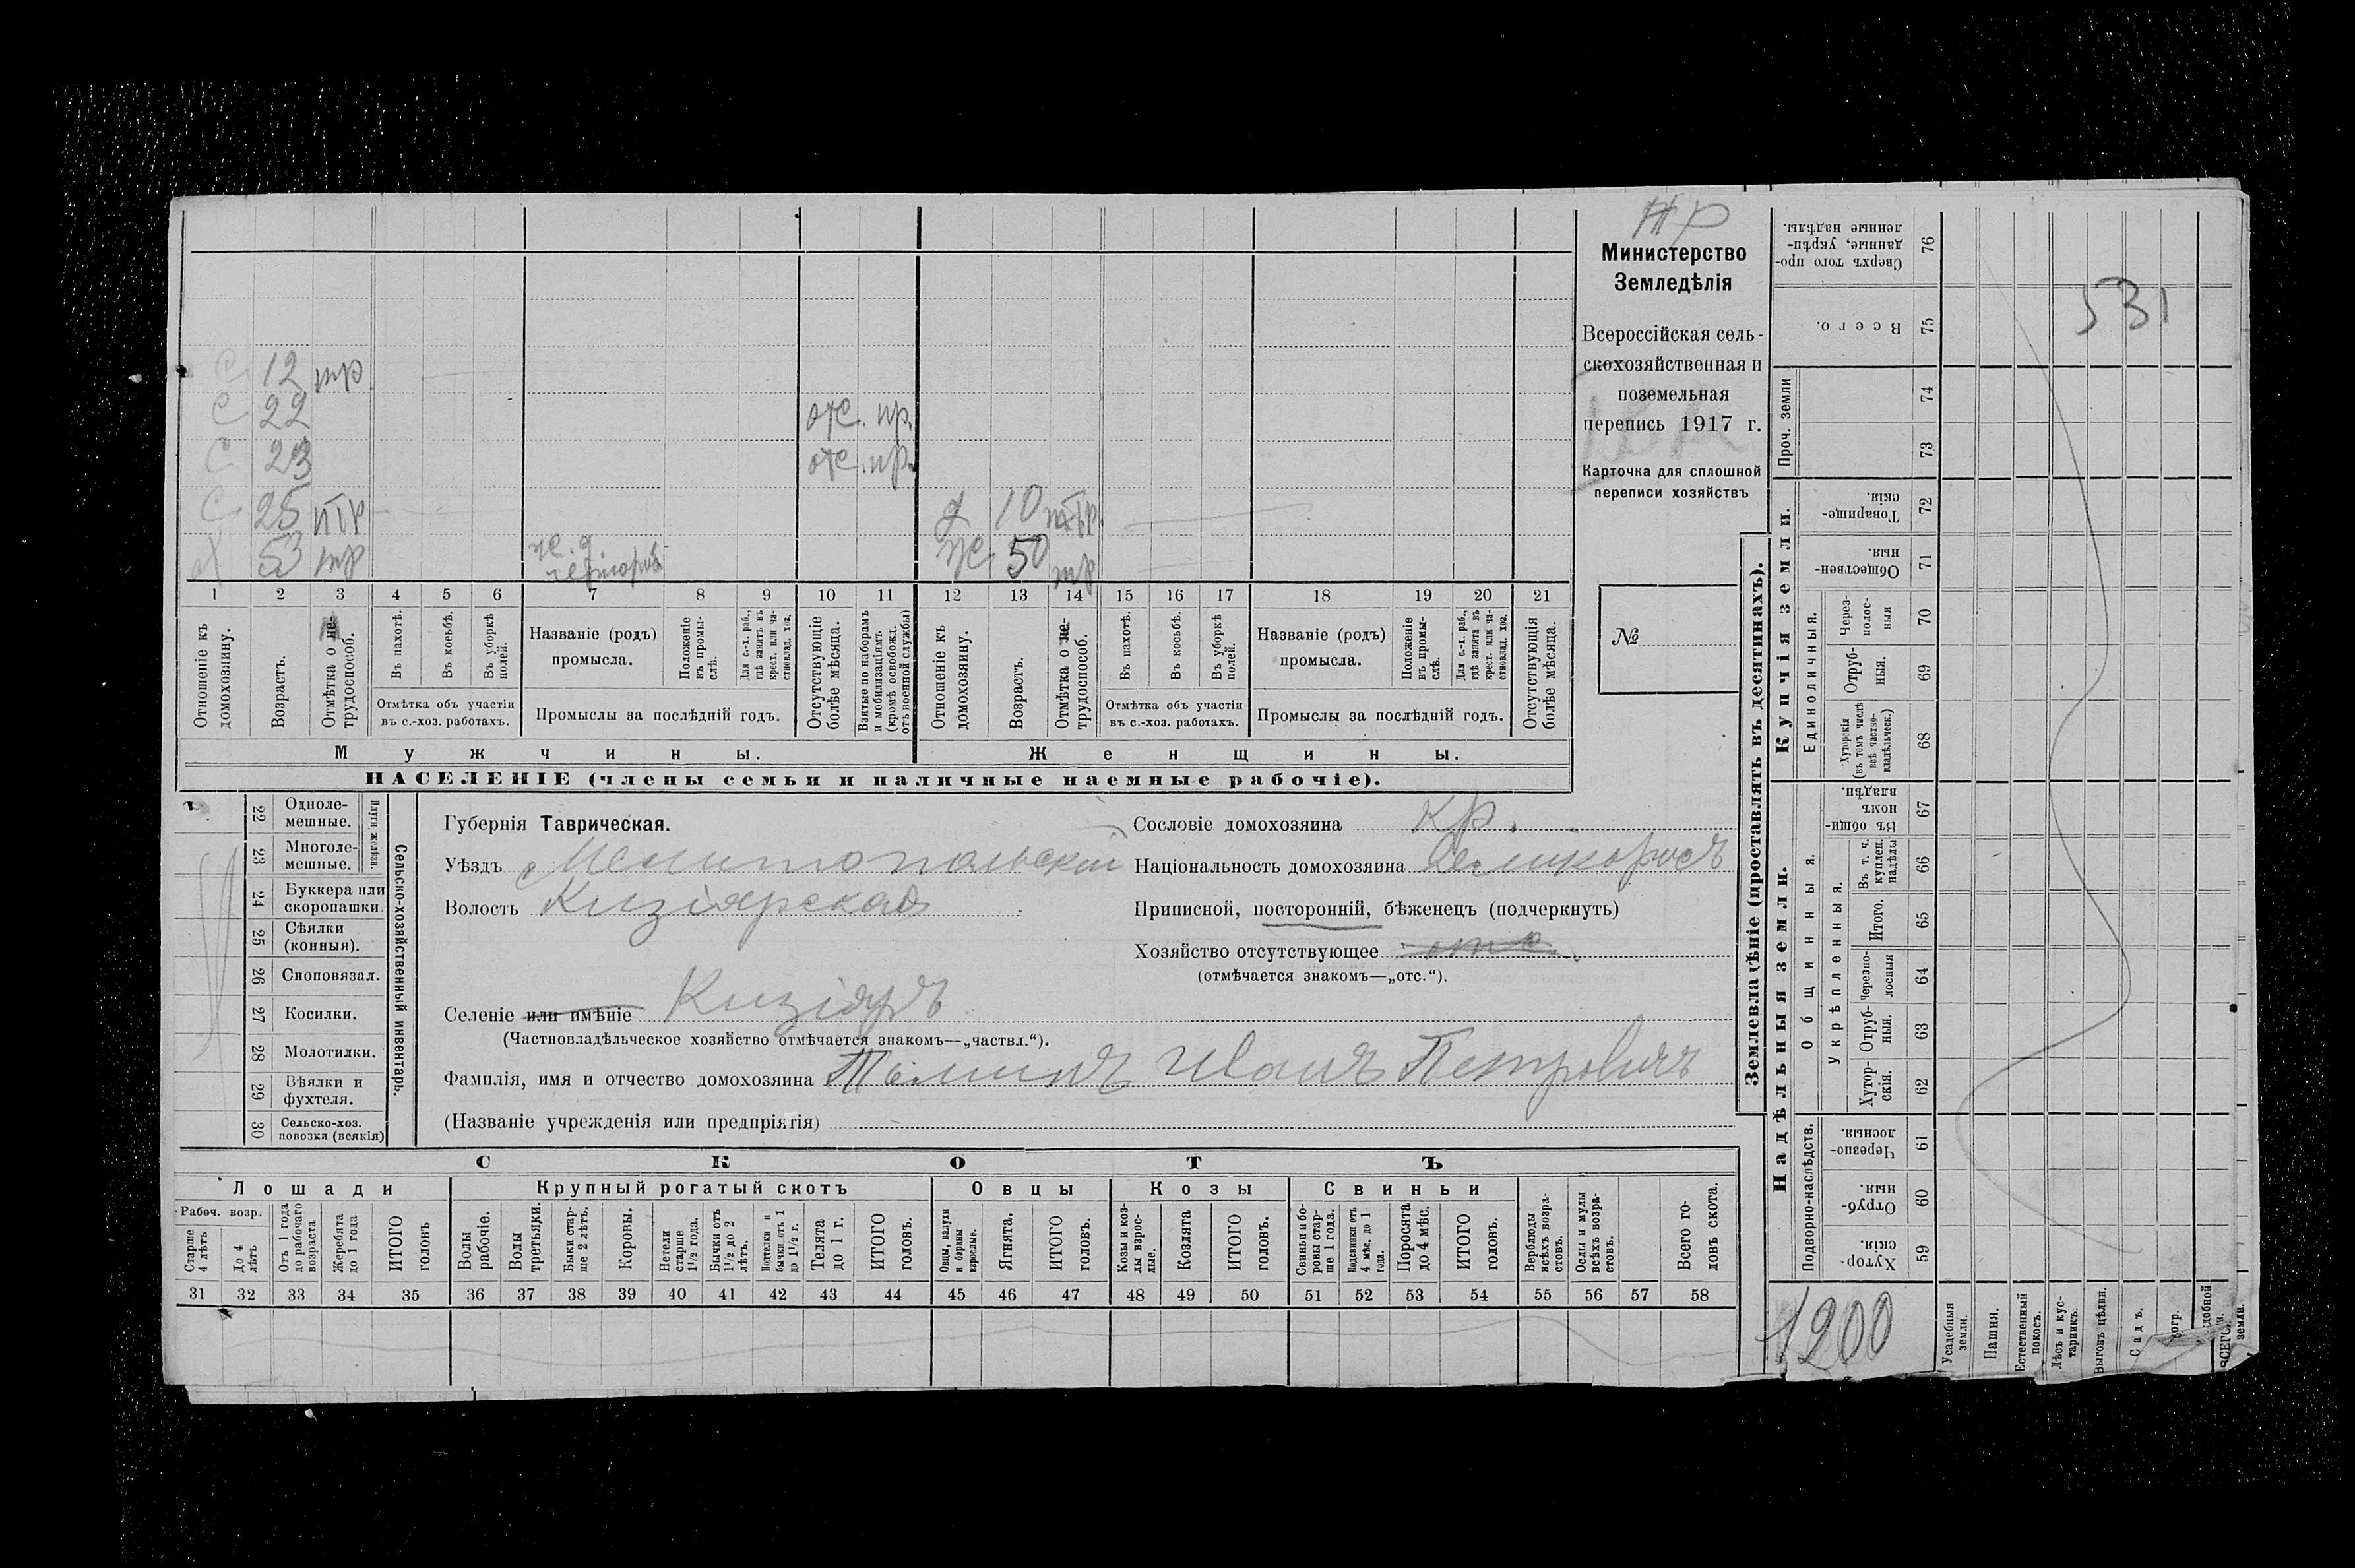 НР
Министерство
Земледѣлія
Всероссійская сель-
скохозяйственная и
поземельная
перепись 1917 г.
Карточка для сплошной
переписи хозяйствъ
№
С 12 тр
С 22 отс. пр.
С 23 отс. пр.
С 25 тр
Д 10 тр
53 тр
ж. д.
Ж 50 тр
1 2 3 4 5 6 7 8 9 10 11 12 13 14 15 16 17 18 19 20 21
Отношеніе къ домохозяину.
Возрастъ.
Отмѣтка о не-трудоспособ.
Въ пахотѣ.
Въ косьбѣ.
Въ уборкѣ полей.
Отмѣтка объ участіи
въ с.-хоз. работахъ.
Названіе (родъ)
промысла.
Положеніе въ промы-слѣ.
Для с.-х. раб., гдѣ занятъ въ крест. или ча-стновлад. хоз.
Промыслы за послѣдній годъ.
Отсутствующіе болѣе мѣсяца.
Взятые по наборамъ и мобилизаціямъ (кромѣ освобожд. отъ военной службы)
Отношеніе къ домохозяину.
Возрастъ.
Отмѣтка о не-трудоспособ.
Въ пахотѣ.
Въ косьбѣ.
Въ уборкѣ полей.
Отмѣтка объ участіи
въ с.-хоз. работахъ.
Названіе (родъ)
промысла.
Положеніе въ промы-слѣ.
Для с.-х. раб., гдѣ занята въ крест. или ча-стновлад. хоз.
Промыслы за послѣдній годъ.
Отсутствующія болѣе мѣсяца.
Мужчины.
Женщины.
НАСЕЛЕНІЕ (члены семьи и наличные наемные рабочіе).
22 Одноле-мешные.
23 Многоле-мешные.
Плуги желѣзн
24 Буккера или скоропашки.
25 Сѣялки (конныя).
26 Сноповязал.
27 Косилки.
28 Молотилки.
29 Вѣялки и фухтеля.
30 Сельско-хоз. повозки (всякія)
Сельско-хозяйственный инвентарь.
Губернія Таврическая.
Уѣздъ Мелитопольскій
Волость Кизіярская
Селеніе или имѣніе Кизіяръ
(Частновладѣльческое хозяйство отмѣчается знакомъ—„частвл.“).
Фамилія, имя и отчество домохозяина Иванъ Петровичъ
(Названіе учрежденія или предпріятія)
Сословіе домохозяина Кр.
Національность домохозяина Великороссъ
Приписной, посторонній, бѣженецъ (подчеркнуть)
Хозяйство отсутствующее отс.
(отмѣчается знакомъ—„отс.“).
СКОТЪ
Лошади
Крупный рогатый скотъ
Овцы
Козы
Свиньи
Рабоч. возр.
Старше 4 лѣтъ
До 4 лѣтъ
Отъ 1 года до рабочаго возраста
Жеребята до 1 года
ИТОГО головъ
Волы рабочіе.
Волы третьяки.
Быки стар-ше 2 лѣтъ.
Коровы.
Нетели старше 1½ года.
Бычки отъ 1½ до 2 лѣтъ.
Подтелки и бычки отъ 1 до 1½ г.
Телята до 1 г.
ИТОГО головъ.
Овцы, валухи и бараны взрослые.
Ягнята.
ИТОГО головъ.
Козы и коз-лы взрос-лые.
Козлята
ИТОГО головъ.
Свиньи и бо-ровы стар-ше 1 года.
Подсвинки отъ 4 мѣс. до 1 года.
Поросята до 4 мѣс.
ИТОГО головъ.
Верблюды всѣхъ возра-стовъ.
Ослы и мулы всѣхъ возра-стовъ.
Всего го-ловъ скота.
31 32 33 34 35 36 37 38 39 40 41 42 43 44 45 46 47 48 49 50 51 52 53 54 55 56 57 58
Землевладѣніе (проставлять въ десятинахъ).
Надѣльныя земли.
Купчія земли.
Проч. земли
Сверхъ того про-данные, укрѣп-ленные надѣлы. 76
Всего. 75
74
73
Товарище-скія. 72
Обществен-ныя. 71
Единоличныя.
Через-полос-ныя 70
Отруб-ныя. 69
Хуторскія (въ томъ числѣ всѣ частно-владѣльческ.) 68
Общинныя.
Въ общи-номъ владѣн. 67
Укрѣпленныя.
Въ т. ч. куплен. надѣлы 66
Итого. 65
Черезпо-лосныя 64
Отруб-ныя. 63
Хутор-скія. 62
Подворно-наслѣдств.
Черезпо-лосныя. 61
Отруб-ныя. 60
Хутор-скія. 59
531
1200
Усадебныя земли.
Пашня.
Естественный покосъ.
Лѣсъ и кус-тарникъ.
Выгонъ цѣлин.
Садъ.
земли.